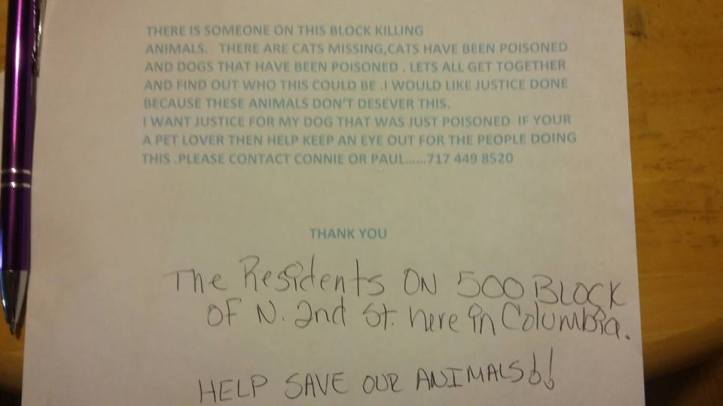 THERE IS SOMEONE ON THIS BLOCK KILLING
ANIMALS. THERE ARE CATS MISSING,CATS HAVE BEEN POISONED
AND DOGS THAT HAVE BEEN POISONED . LETS ALL GET TOGETHER
AND FIND OUT WHO THIS COULD BE .I WOULD LIKE JUSTICE DONE
BECAUSE THESE ANIMALS DON'T DESEVER THIS.
I WANT JUSTICE FOR MY DOG THAT WAS JUST POISONED IF YOUR
A PET LOVER THEN HELP KEEP AN EYE OUT FOR THE PEOPLE DOING
THIS .PLEASE CONTACT CONNIE OR PAUL......717 449 8520
THANK YOU
The Residents ON 500 BLOCK
OF N. 2nd St. here in Columbia.
HELP SAVE OUR ANIMALS!!